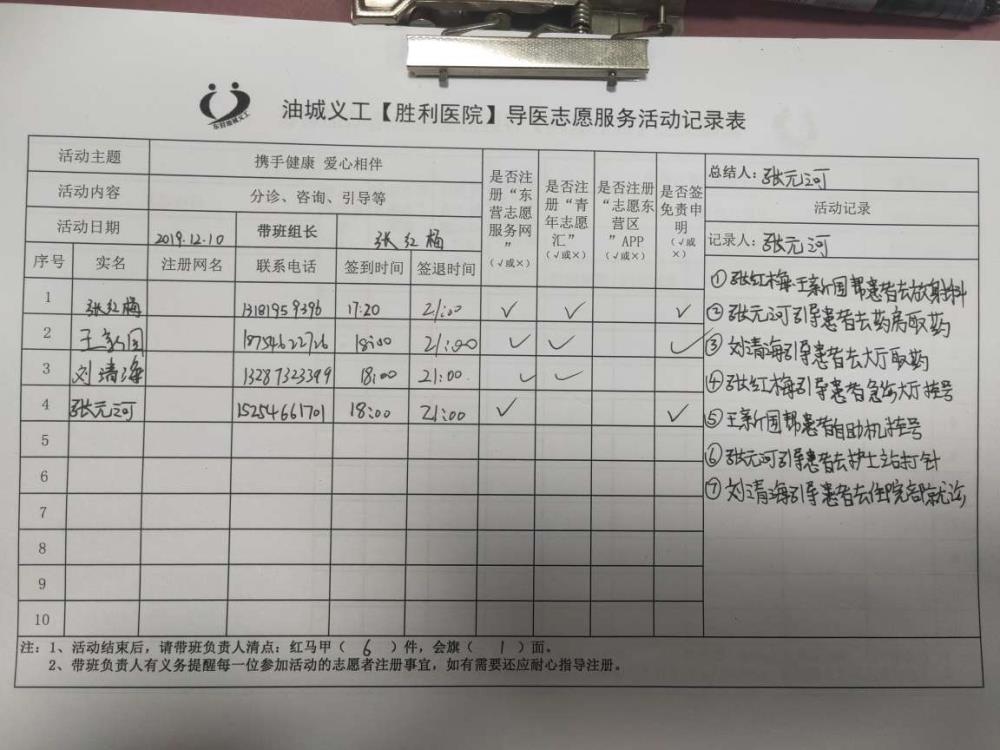 东营油城义工
油城义工【胜利医院】导医志愿服务活动记录表
活动主题 携手健康 爱心相伴
活动内容 分诊、咨询、引导等
活动日期 2019.12.10 带班组长 张红梅
是否注册“东营志愿服务网” (√或×)
是否注册“青年志愿汇” (√或×)
是否注册“志愿东营区”APP (√或×)
是否签免责申明 (√或×)
序号 实名 注册网名 联系电话 签到时间 签退时间
1 张红梅 13181959396 17:20 21:00 √ √ √
2 王新国 18754622726 18:00 21:00 √ √ √
3 刘清海 13287323399 18:00 21:00 √ √
4 张元河 15254661701 18:00 21:00 √ √
5
6
7
8
9
10
总结人：张元河
活动记录
记录人：张元河
①张红梅.王新国帮患者去放射科
②张元河引导患者去药房取药
③刘清海引导患者去大厅取药
④张红梅引导患者急诊大厅挂号
⑤王新国帮患者自助机挂号
⑥张元河引导患者去护士站打针
⑦刘清海引导患者去住院部就诊
注：1、活动结束后，请带班负责人清点：红马甲（ 6 ）件，会旗（ 1 ）面。
2、带班负责人有义务提醒每一位参加活动的志愿者注册事宜，如有需要还应耐心指导注册。